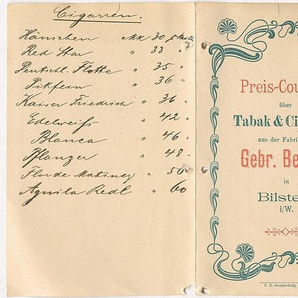 Cigarren.
Hänschen Mk 30 p Mille
Red Star " 33 "
Deutschl. Flotte " 35 "
Pikfein " 36 "
Kaiser Friedrich " 36 "
Edelweiß " 42 "
Blanca " 46 "
Pflanzer " 48
Flor de Matinez " 50
Aguila Real " 60
Preis-Cou
über
Tabak & Ci
aus der Fabri
Gebr. Be
in
Bilste
i/W.